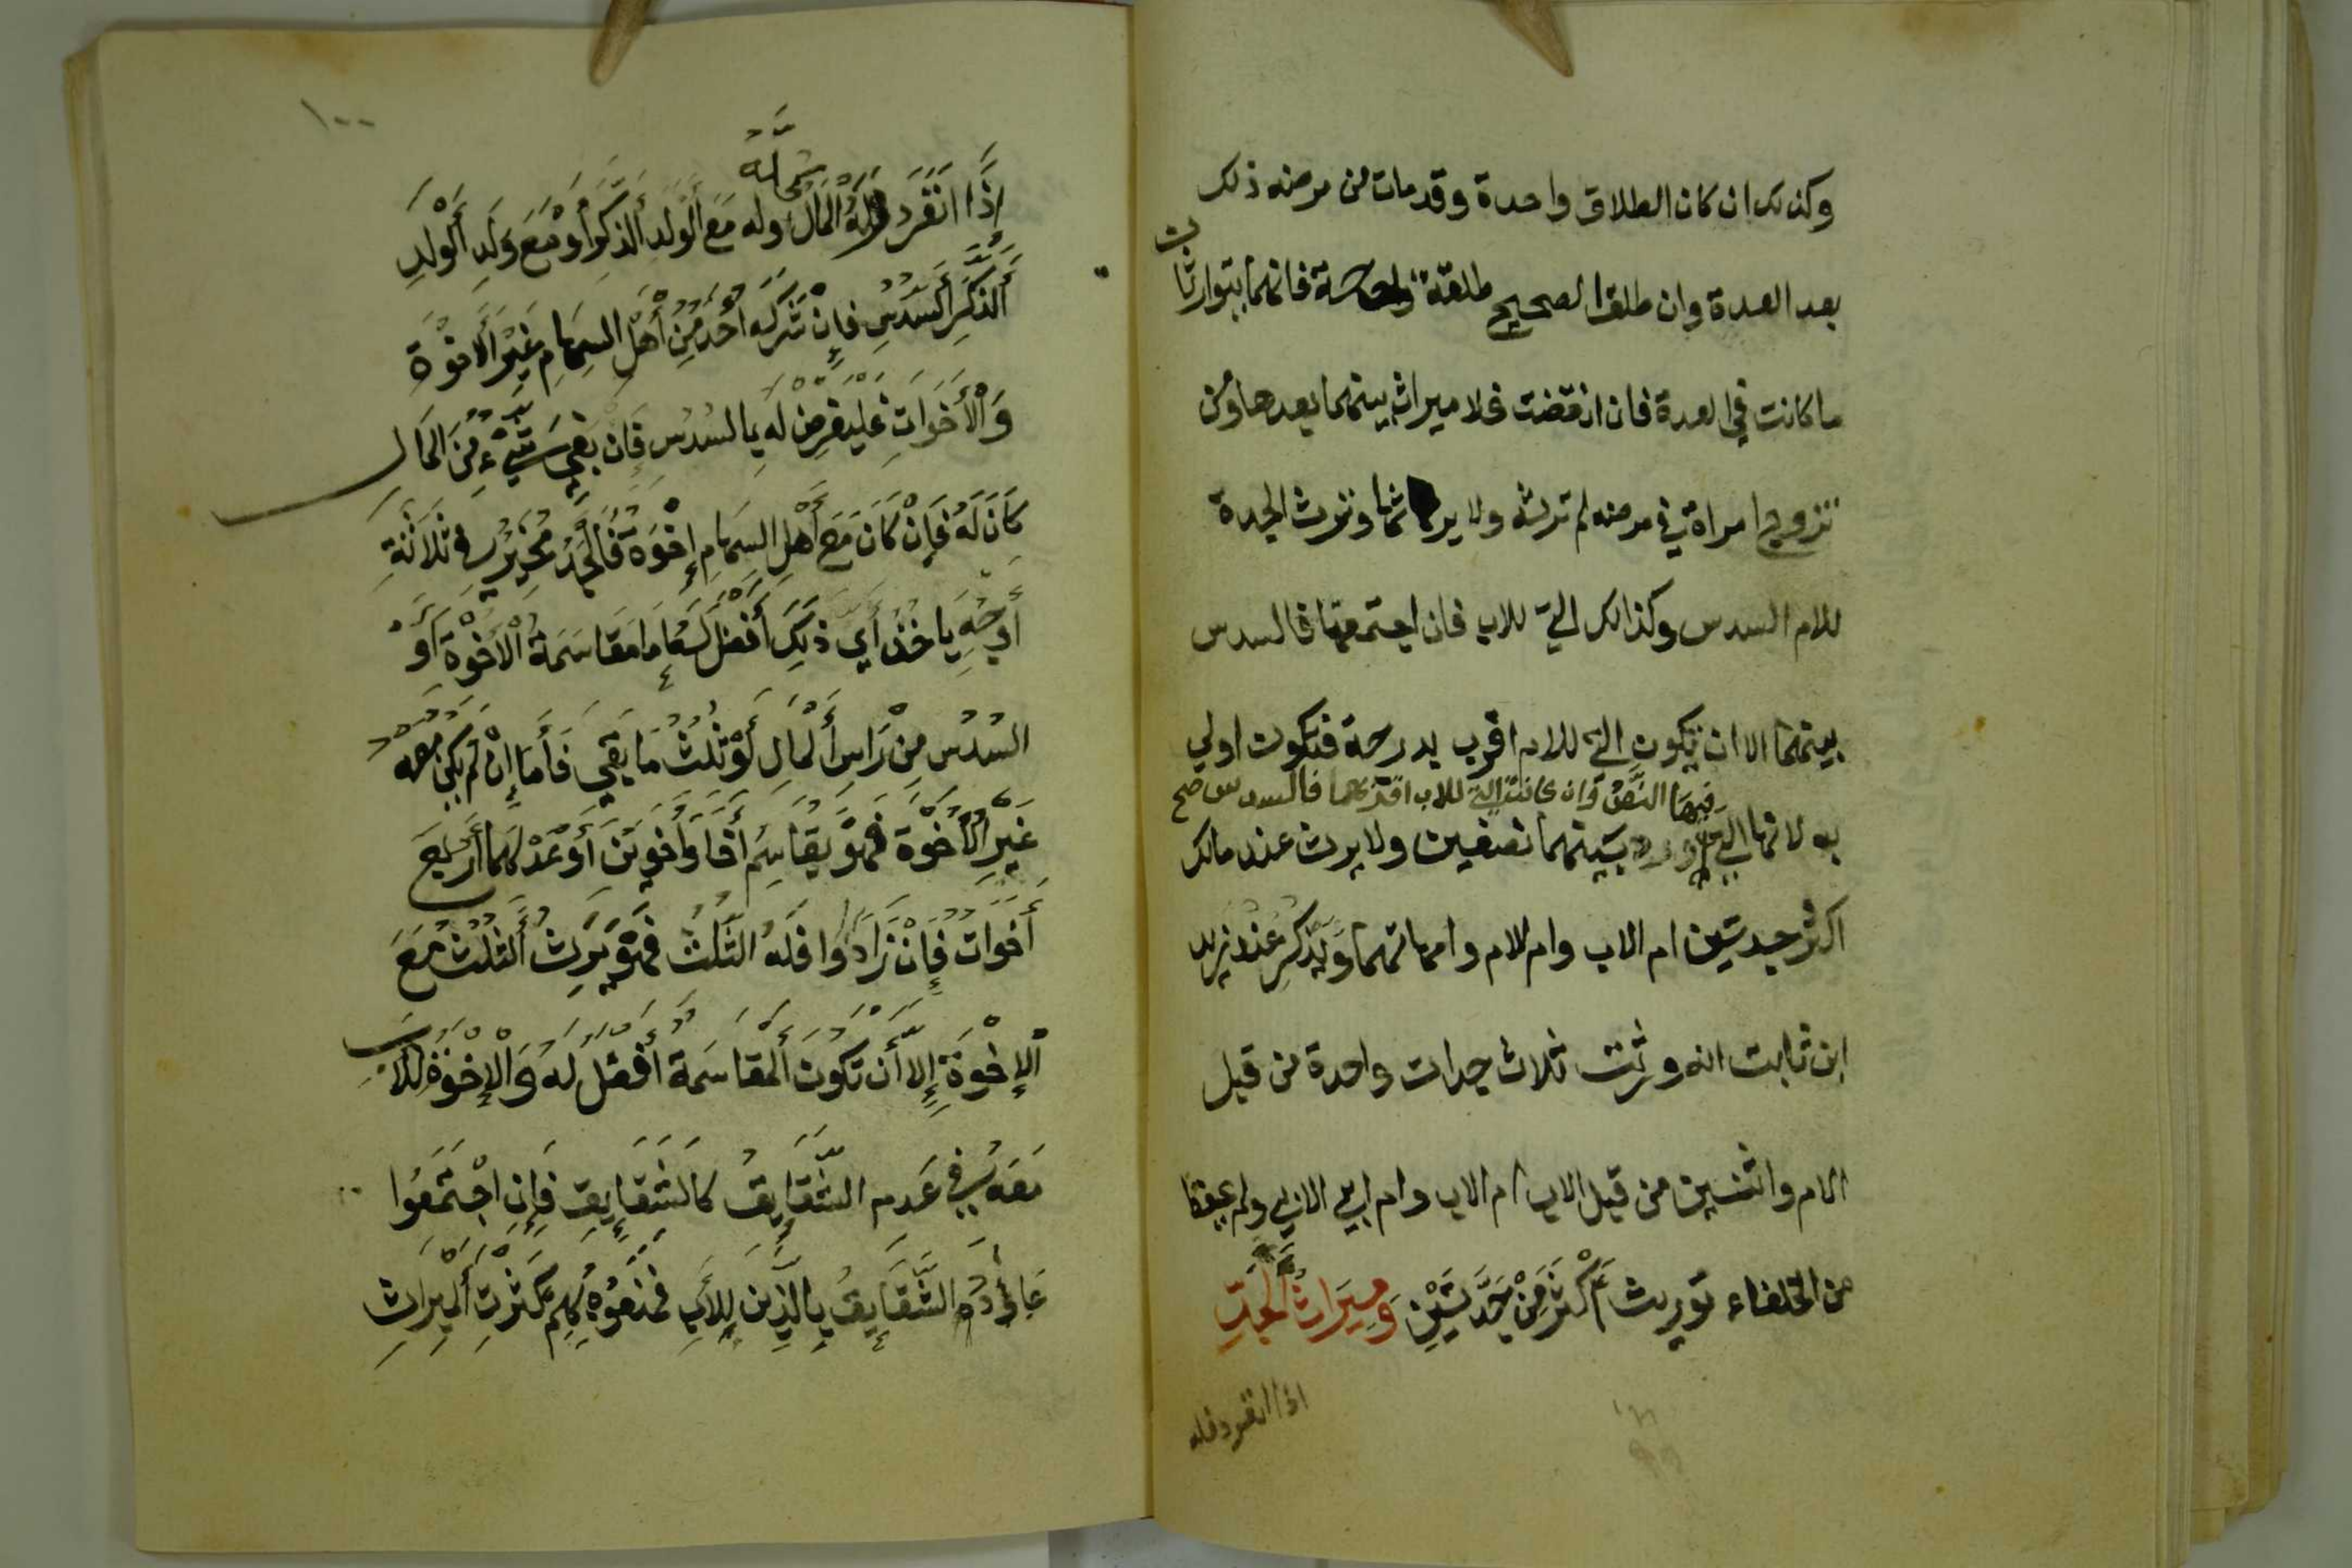 وكذلك ان كان الطلاق واحدة وقد مات من مرضه ذلك
بعد العدة وان طلق الصحيح طلقة واحدة فانهما يتوارثان
ما كانت في العدة فان انقضت فلا ميراث بينهما بعدها ومن
تزوج امراة في مرضه لم ترثه ولا يرثها وترث الجدة
للام السدس وكذالك التي للاب فان اجتمعتا فالسدس
بينهما الا ان تكون التي للام اقرب بدرجة فتكون اولي
فيها النص وان كانت التي للاب اقربهما فالسدس صح
به لانها التي بينهما نصفين ولا يرث عند مالك
اكثر جدتين ام الاب وام الام وامهاتهما ويذكر عند زيد
ابن ثابت انه ورثت ثلاث جدات واحدة من قبل
الام واثنين من قبل الاب ام الاب وام ابي الاب ولم يحفظ
من الخلفاء توريث أَكْثَرَ مِنْ جَدَّتَيْنِ وَمِيرَاثُ الْجَدِّ
اذا انفرد فله
١٠٠
إِذَا انْفَرَدَ فَلَهُ الْمَالُ وله مَعَ الْوَلَدِ الذَّكَرِ أَوْ مَعَ وَلَدِ الْوَلَدِ
الذَّكَرِ السُّدُسُ فَإِنْ شَرَكَه أَحَدٌ مِّنْ أَهْلِ السِهَامِ غَيْرَ الْاخْوَةِ
وَالْأَخَوَاتِ فَليفرِضْ لَه بِالسُدُسِ فَإِن بَقِيَ شَيْءٌ مِّنَ الْمَالِ
كَانَ لَهُ فَإِنْ كَانَ مَعَ أَهْلِ السِهَامِ إِخْوَةٌ فَالْجَدُّ مُخَيَّرٌ في ثَلَاثَةِ
أَوْجُهٍ يَاخذُ أَيَ ذَلِكَ أَفْضَل لَهُ إما مقَاسَمَةُ الْاخْوَةِ أَوْ
السُدُسُ مِنْ رَاسِ الْمَالِ أَوْ ثُلُثُ مَا بَقِيَ فَأَمَا إِنْ لَمْ يَكُن مَعَهُ
غَيْرُ الْاخْوَةِ فَهُوَ يُقَاسِمُ أَخًا وَأَخَوَيْنِ أَوْ عَدْلَهُمَا أَرْبَعَ
أَخَوَاتٍ فَإِنْ زَادُوا فَلَهُ الثُّلُثُ فَهُوَ يَرِثُ الثُّلُثَ مَعَ
الْإِخْوَةِ إِلَّا أَن تَكُونَ الْمُقَاسَمَةُ أَفْضَلَ لَهُ وَالْإِخْوَةُ لِلْأَبِ
مَعَهُ فِي عَدَمِ الشَّقَايِقِ كَالشَّقَايِقِ فَإِنِ اجْتَمَعُوا
عَادَّهُ الشَّقَايِقُ بِالَّذِينَ لِلْأَبِ فَمَنَعُوهُ بِهِمْ كَثْرَةَ الْمِيرَاثِ